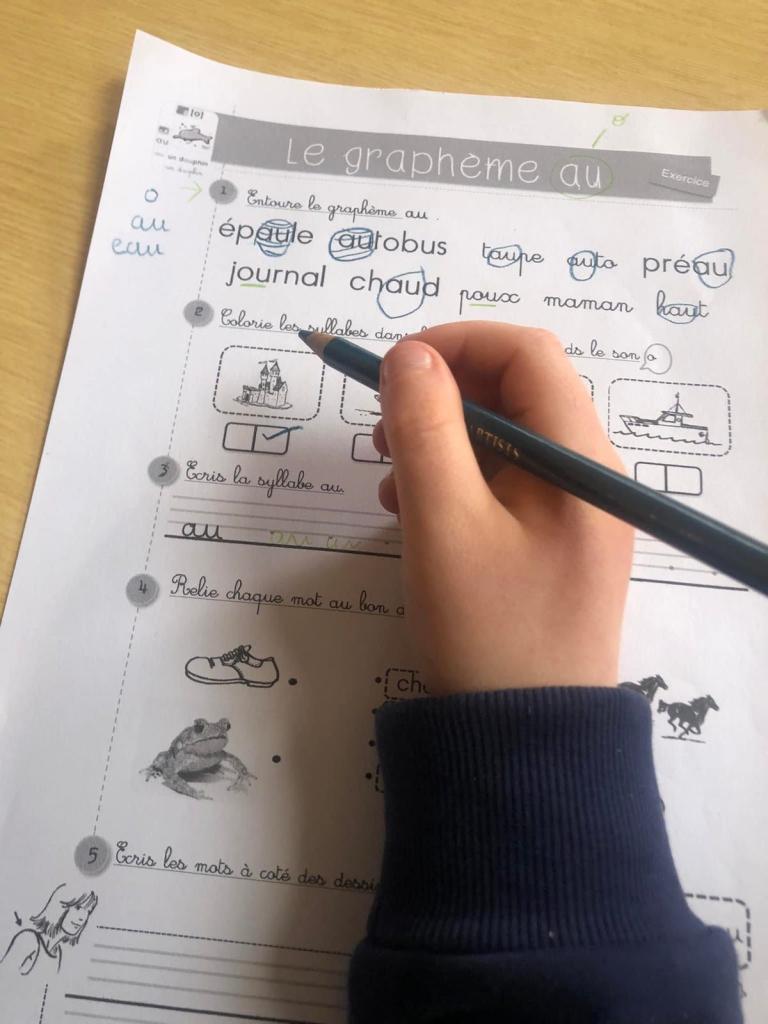 [o]
au
un dauphin
un dauphin
o
Le graphème au
Exercice
o
au
eau
1 Entoure le graphème au.
épaule autobus taupe auto préau
journal chaud poux maman haut
2 Colorie les syllabes dans le son o
3 Ecris la syllabe au.
au au au
4 Relie chaque mot au bon
5 Ecris les mots à coté des
ARTISTS